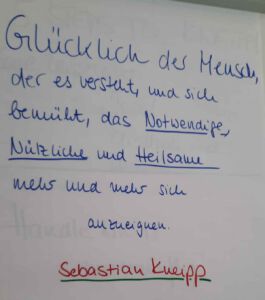 Glücklich der Mensch,
der es versteht, und sich
bemüht, das Notwendige,
Nützliche und Heilsame
mehr und mehr sich
anzueignen.
Sebastian Kneipp